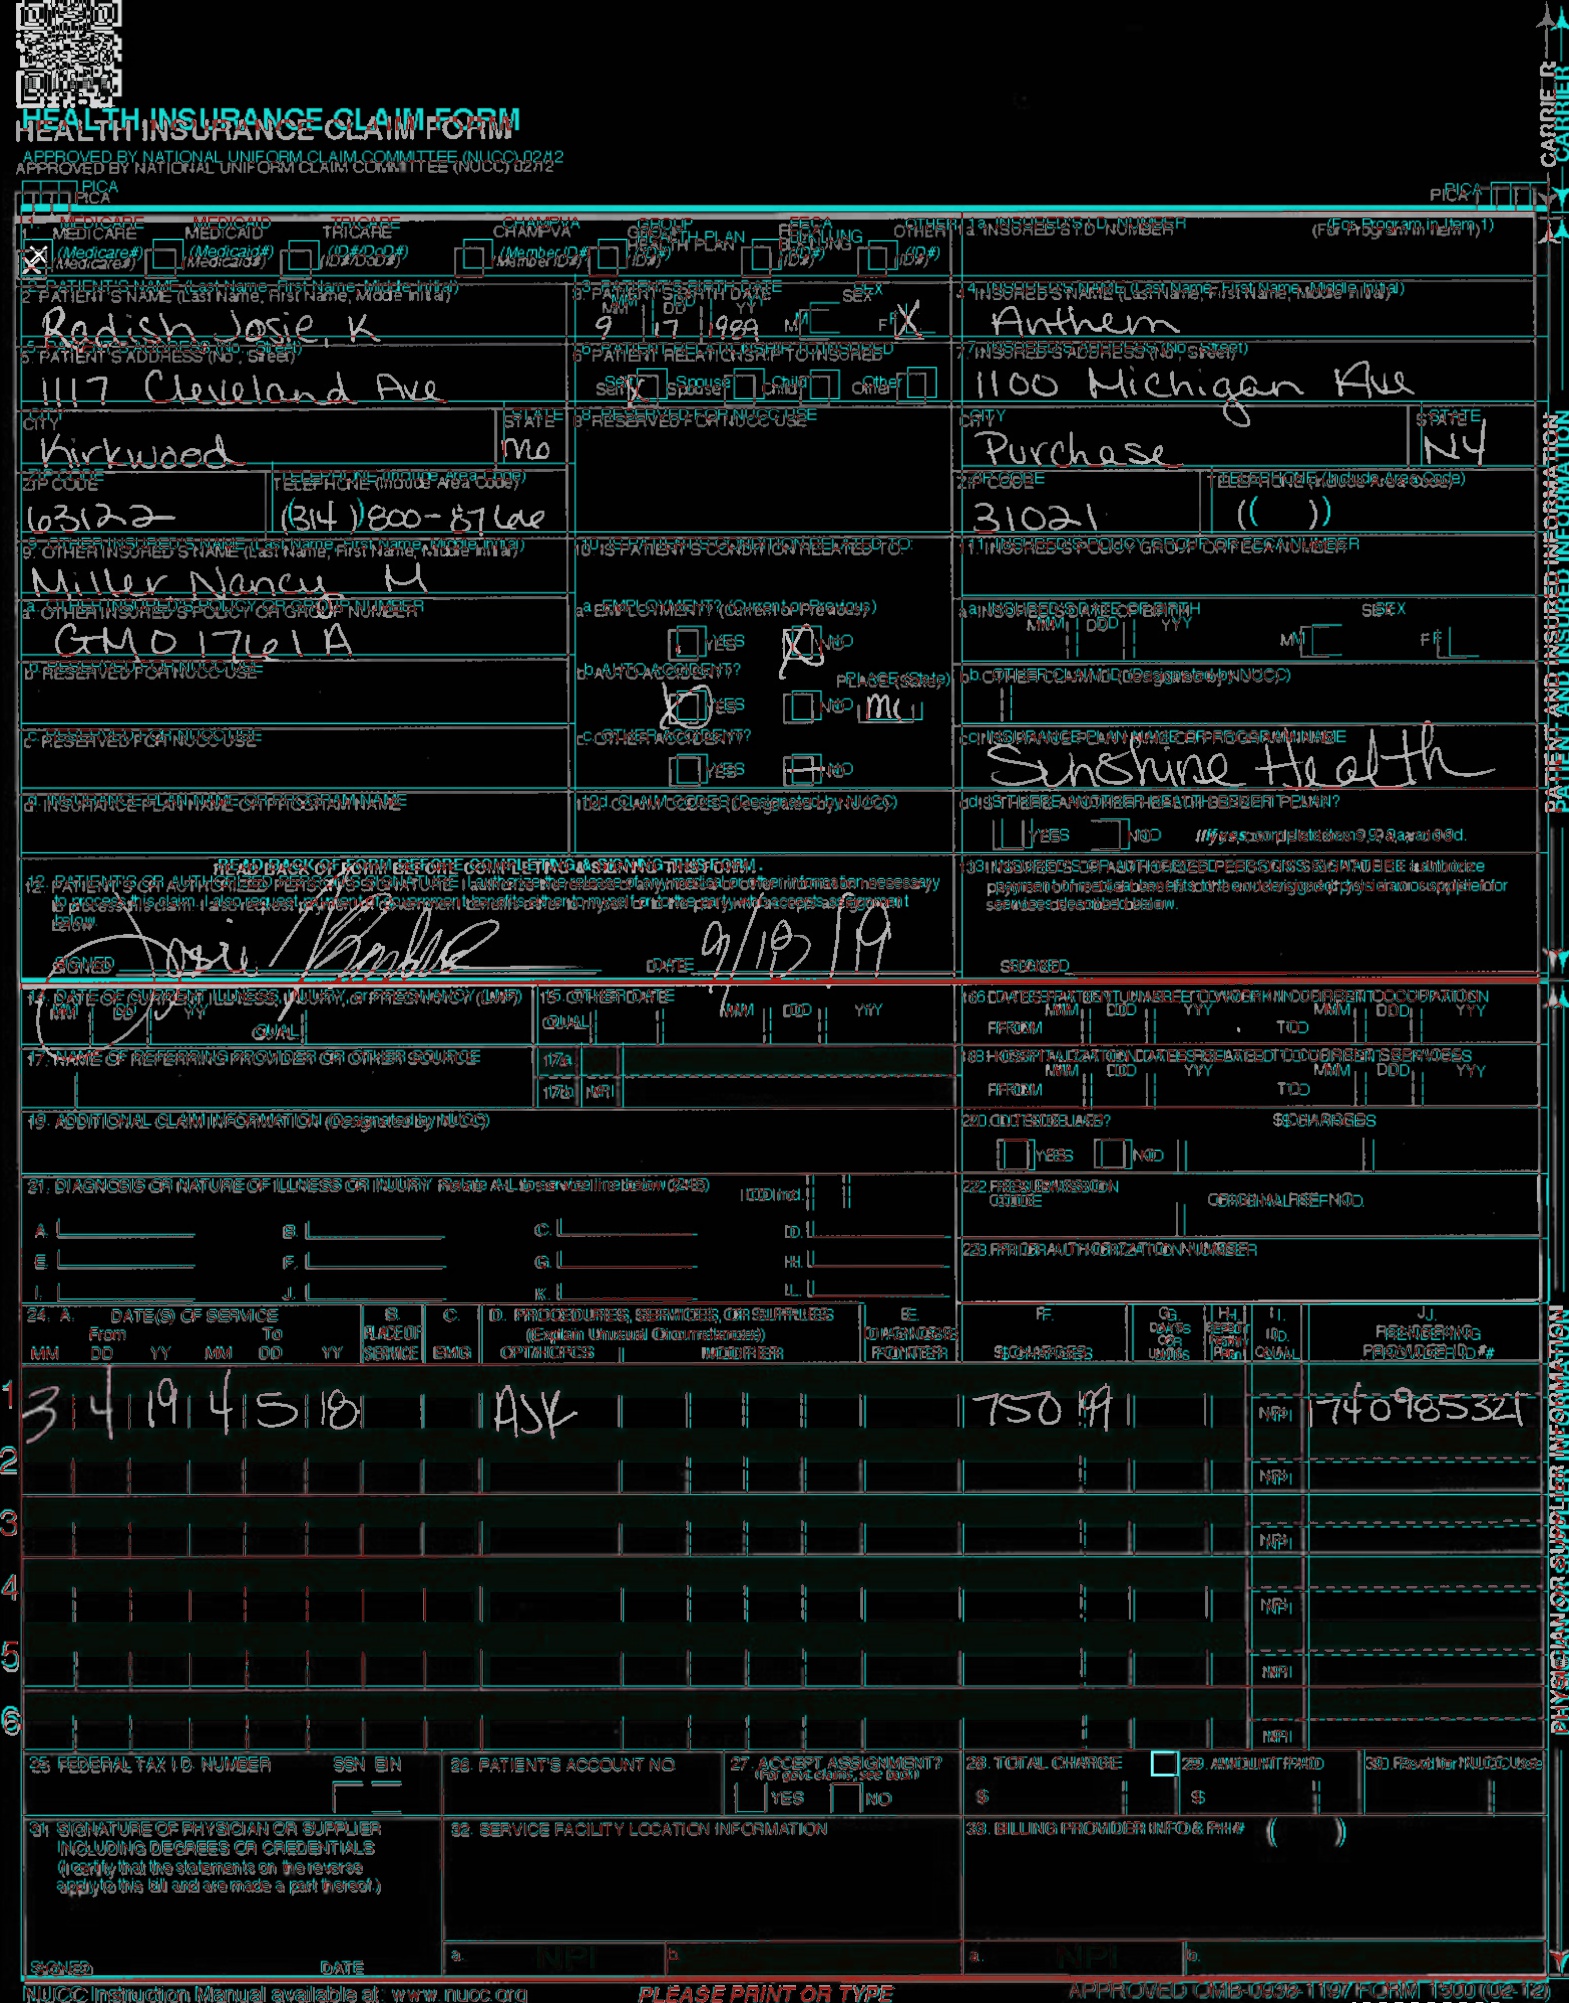 HEALTH INSURANCE CLAIM FORM
APPROVED BY NATIONAL UNIFORM CLAIM COMMITTEE (NUCC) 02/12
PICA PICA
CARRIER
1. MEDICARE MEDICAID TRICARE CHAMPVA GROUP HEALTH PLAN FECA BLK LUNG OTHER
(Medicare#) (Medicaid#) (ID#/DoD#) (Member ID#) (ID#) (ID#) (ID#)
1a. INSURED'S I.D. NUMBER (For Program in Item 1)
2. PATIENT'S NAME (Last Name, First Name, Middle Initial)
Radish Josie, K
3. PATIENT'S BIRTH DATE SEX
MM DD YY
9 17 1989 M F X
4. INSURED'S NAME (Last Name, First Name, Middle Initial)
Anthem
5. PATIENT'S ADDRESS (No., Street)
1117 Cleveland Ave
6. PATIENT RELATIONSHIP TO INSURED
Self X Spouse Child Other
7. INSURED'S ADDRESS (No., Street)
1100 Michigan Ave
CITY STATE
Kirkwood Mo
8. RESERVED FOR NUCC USE
CITY STATE
Purchase NY
ZIP CODE TELEPHONE (Include Area Code)
63122 (314) 800-8766
ZIP CODE TELEPHONE (Include Area Code)
31021 ( )
9. OTHER INSURED'S NAME (Last Name, First Name, Middle Initial)
Miller Nancy, M
10. IS PATIENT'S CONDITION RELATED TO:
11. INSURED'S POLICY GROUP OR FECA NUMBER
a. OTHER INSURED'S POLICY OR GROUP NUMBER
GMO1761A
a. EMPLOYMENT? (Current or Previous)
YES X NO
a. INSURED'S DATE OF BIRTH SEX
MM DD YY M F
b. RESERVED FOR NUCC USE
b. AUTO ACCIDENT? PLACE (State)
X YES NO
b. OTHER CLAIM ID (Designated by NUCC)
c. RESERVED FOR NUCC USE
c. OTHER ACCIDENT?
YES NO
c. INSURANCE PLAN NAME OR PROGRAM NAME
Sunshine Health
d. INSURANCE PLAN NAME OR PROGRAM NAME
10d. CLAIM CODES (Designated by NUCC)
d. IS THERE ANOTHER HEALTH BENEFIT PLAN?
YES NO If yes, complete items 9, 9a, and 9d.
PATIENT AND INSURED INFORMATION
READ BACK OF FORM BEFORE COMPLETING & SIGNING THIS FORM.
12. PATIENT'S OR AUTHORIZED PERSON'S SIGNATURE I authorize the release of any medical or other information necessary
to process this claim. I also request payment of government benefits either to myself or to the party who accepts assignment
below.
SIGNED Josie DATE 9/18/19
13. INSURED'S OR AUTHORIZED PERSON'S SIGNATURE I authorize
payment of medical benefits to the undersigned physician or supplier for
services described below.
SIGNED
14. DATE OF CURRENT ILLNESS, INJURY, or PREGNANCY (LMP)
MM DD YY QUAL.
15. OTHER DATE
QUAL. MM DD YY
16. DATES PATIENT UNABLE TO WORK IN CURRENT OCCUPATION
MM DD YY MM DD YY
FROM TO
17. NAME OF REFERRING PROVIDER OR OTHER SOURCE
17a.
17b. NPI
18. HOSPITALIZATION DATES RELATED TO CURRENT SERVICES
MM DD YY MM DD YY
FROM TO
19. ADDITIONAL CLAIM INFORMATION (Designated by NUCC)
20. OUTSIDE LAB? $ CHARGES
YES NO
21. DIAGNOSIS OR NATURE OF ILLNESS OR INJURY Relate A-L to service line below (24E) ICD Ind.
A. B. C. D.
E. F. G. H.
I. J. K. L.
22. RESUBMISSION CODE ORIGINAL REF. NO.
23. PRIOR AUTHORIZATION NUMBER
24. A. DATE(S) OF SERVICE B. C. D. PROCEDURES, SERVICES, OR SUPPLIES E. F. G. H. I. J.
From To PLACE OF SERVICE (Explain Unusual Circumstances) DIAGNOSIS POINTER DAYS OR UNITS EPSDT Family Plan ID. QUAL. RENDERING PROVIDER ID. #
MM DD YY MM DD YY EMG CPT/HCPCS MODIFIER $ CHARGES
1 3 4 19 4 5 18 750 99 NPI 1740985321
2 NPI
3 NPI
4 NPI
5 NPI
6 NPI
PHYSICIAN OR SUPPLIER INFORMATION
25. FEDERAL TAX I.D. NUMBER SSN EIN
26. PATIENT'S ACCOUNT NO.
27. ACCEPT ASSIGNMENT?
(For govt. claims, see back)
YES NO
28. TOTAL CHARGE
$
29. AMOUNT PAID
$
30. Rsvd for NUCC Use
31. SIGNATURE OF PHYSICIAN OR SUPPLIER
INCLUDING DEGREES OR CREDENTIALS
(I certify that the statements on the reverse
apply to this bill and are made a part thereof.)
SIGNED DATE
32. SERVICE FACILITY LOCATION INFORMATION
a. NPI b.
33. BILLING PROVIDER INFO & PH # ( )
a. NPI b.
NUCC Instruction Manual available at: www.nucc.org
PLEASE PRINT OR TYPE
APPROVED OMB-0938-1197 FORM 1500 (02-12)